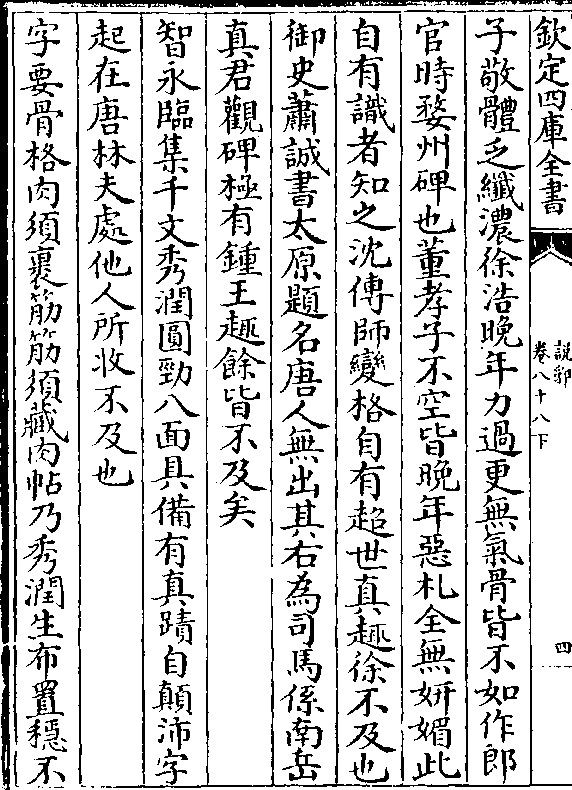 欽定四庫全書
説郛
卷八十八下
四
子敬體乏纖濃徐浩晚年力過更無氣骨皆不如作郎
官時婺州碑也董孝子不空皆晚年惡札全無妍媚此
自有識者知之沈傳師變格自有超世真趣徐不及也
御史蕭誠書太原題名唐人無出其右為司馬係南岳
真君觀碑極有鍾王趣餘皆不及矣
智永臨集千文秀潤圓勁八面具備有真蹟自顛沛字
起在唐林夫處他人所收不及也
字要骨格肉須裹筋筋須藏肉帖乃秀潤生布置穩不